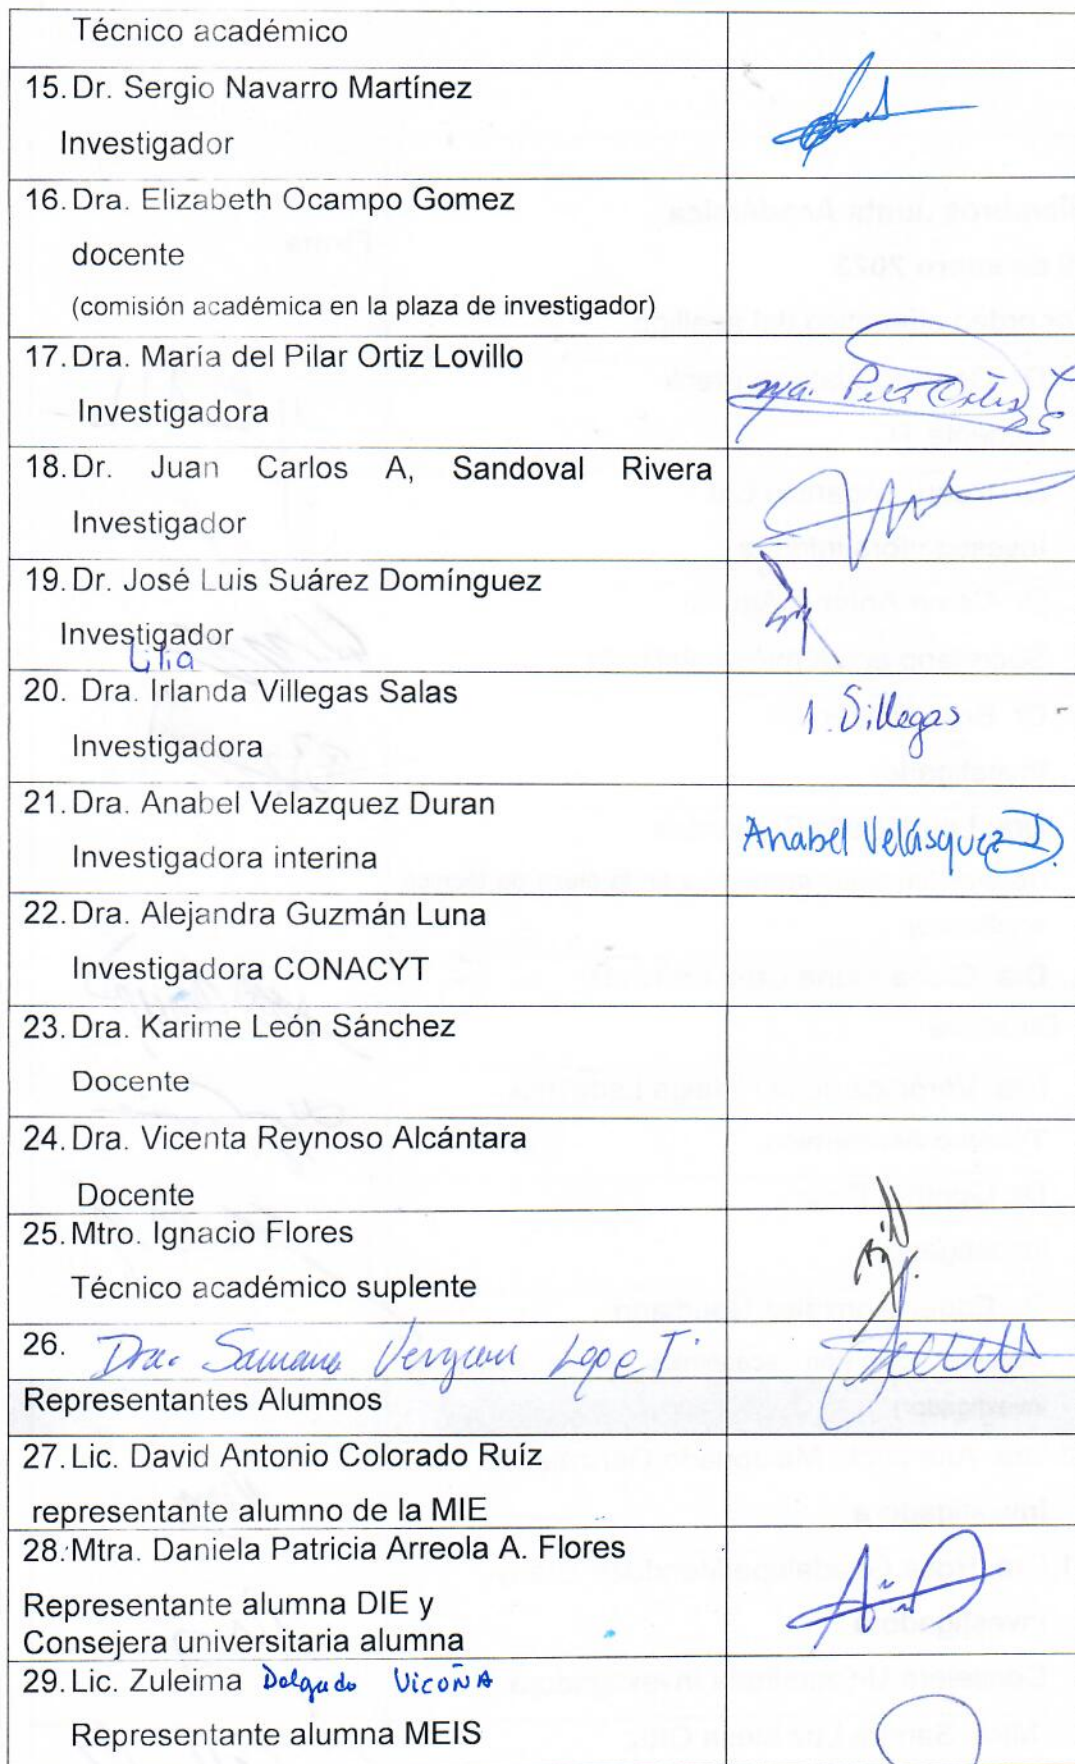 Técnico académico
15. Dr. Sergio Navarro Martínez
Investigador
16. Dra. Elizabeth Ocampo Gomez
docente
(comisión académica en la plaza de investigador)
17. Dra. María del Pilar Ortiz Lovillo
Investigadora
18. Dr. Juan Carlos A, Sandoval Rivera
Investigador
19. Dr. José Luis Suárez Domínguez
Investigador
Lilia
20. Dra. Irlanda Villegas Salas
I. Villegas
Investigadora
21. Dra. Anabel Velazquez Duran
Anabel Velásquez D.
Investigadora interina
22. Dra. Alejandra Guzmán Luna
Investigadora CONACYT
23. Dra. Karime León Sánchez
Docente
24. Dra. Vicenta Reynoso Alcántara
Docente
25. Mtro. Ignacio Flores
Técnico académico suplente
26. Dra.
Representantes Alumnos
27. Lic. David Antonio Colorado Ruíz
representante alumno de la MIE
28. Mtra. Daniela Patricia Arreola A. Flores
Representante alumna DIE y
Consejera universitaria alumna
29. Lic. Zuleima Delgado Vicoña
Representante alumna MEIS